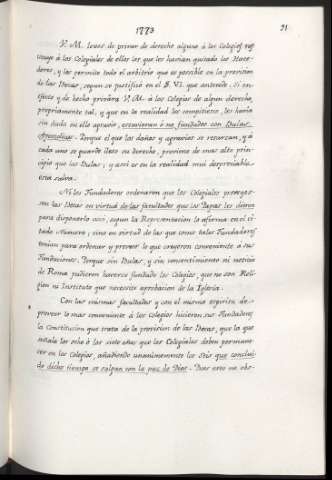 1773
91
V. M. lexos de privar de derecho alguno á los Colegios res
tituye á los Colegiales de ellos los que les havian quitado los Hace-
dores, y les permite todo el arbitrio que es posible en la provision
de las Becas, segun se justificó en el §. VI. que antecede. Si en-
efecto y de hecho privára V. M. á los Colegios de algun derecho,
propriamente tal, y que en la realidad les compitiera, les haria
sin duda en ello agravio, estuviesen ó no fundados con Bulas
Apostolicas. Porque el que los daños y agravios se resarzan, y á
cada uno se guarde ileso su derecho, proviene de mas alto prin-
cipio que las Bulas; y assi es en la realidad mui despreciable
esta salva.
Ni los Fundadores ordenaron que los Colegiales proveyes-
sen las Becas en virtud de las facultades que los Papas les dieron
para disponerlo assi, segun la Representacion lo afirma en el ci-
tado Numero, sino en virtud de las que como tales Fundadores
tenian para ordenar y proveer lo que creyeron conveniente á sus
Fundaciones. Porque sin Bulas, y sin consentimiento ni noticia
de Roma pudieron haverse fundado los Colegios, que no son Reli-
gion ni Instituto que necesite aprobacion de la Iglesia.
Con las mismas facultades y con el mismo espiritu de-
proveer lo mas conveniente á los Colegios hicieron sus Fundadores
la Constitucion que trata de la provision de las Becas, que la que
señala los ocho ó los siete años que los Colegiales deben permane-
cer en los Colegios, añadiendo unanimemente los Seis que conclui-
do dicho tiempo se salgan con la paz de Dios. Pero esto no obs-